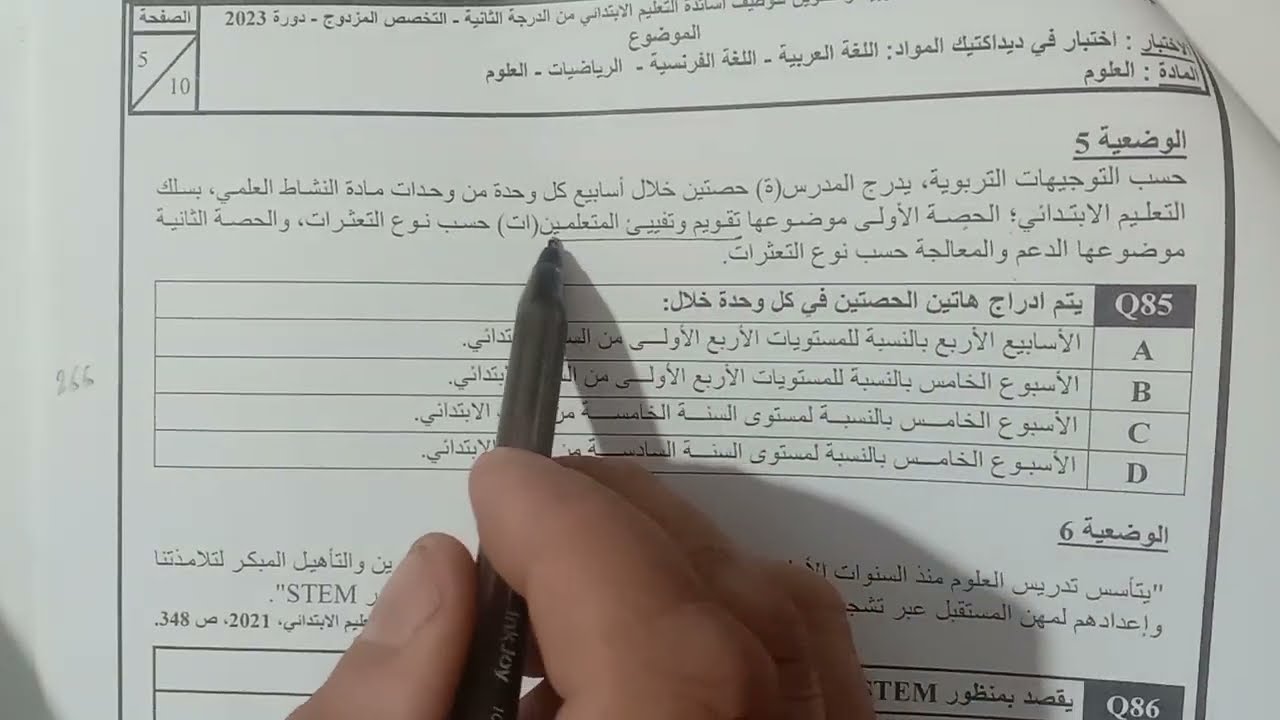 توظيف أساتذة التعليم الابتدائي من الدرجة الثانية - التخصص المزدوج - دورة 2023
الموضوع
الصفحة
5
10
الاختبار : اختبار في ديداكتيك المواد: اللغة العربية - اللغة الفرنسية - الرياضيات - العلوم
المادة : العلوم
الوضعية 5
حسب التوجيهات التربوية، يدرج المدرس(ة) حصتين خلال أسابيع كل وحدة من وحدات مادة النشاط العلمي، بسلك
التعليم الابتدائي؛ الحصة الأولى موضوعها تقويم وتفييئ المتعلمين(ات) حسب نوع التعثرات، والحصة الثانية
موضوعها الدعم والمعالجة حسب نوع التعثرات.
Q85 يتم ادراج هاتين الحصتين في كل وحدة خلال:
A الأسابيع الأربع بالنسبة للمستويات الأربع الأولى من
B الأسبوع الخامس بالنسبة للمستويات الأربع الأولى من
C الأسبوع الخامس بالنسبة لمستوى السنة الخامسة الابتدائي.
D الأسبوع الخامس بالنسبة لمستوى السنة السادسة من الابتدائي.
266
الوضعية 6
"يتأسس تدريس العلوم منذ السنوات والتأهيل المبكر لتلامذتنا
وإعدادهم لمهن المستقبل عبر STEM".
الابتدائي، 2021، ص 348.
Q86 يقصد بمنظور STEM
InkJoy